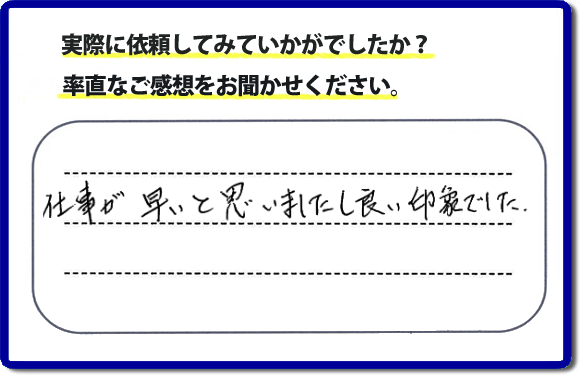 実際に依頼してみていかがでしたか？
率直なご感想をお聞かせください。
仕事が早いと思いましたし良い印象でした.